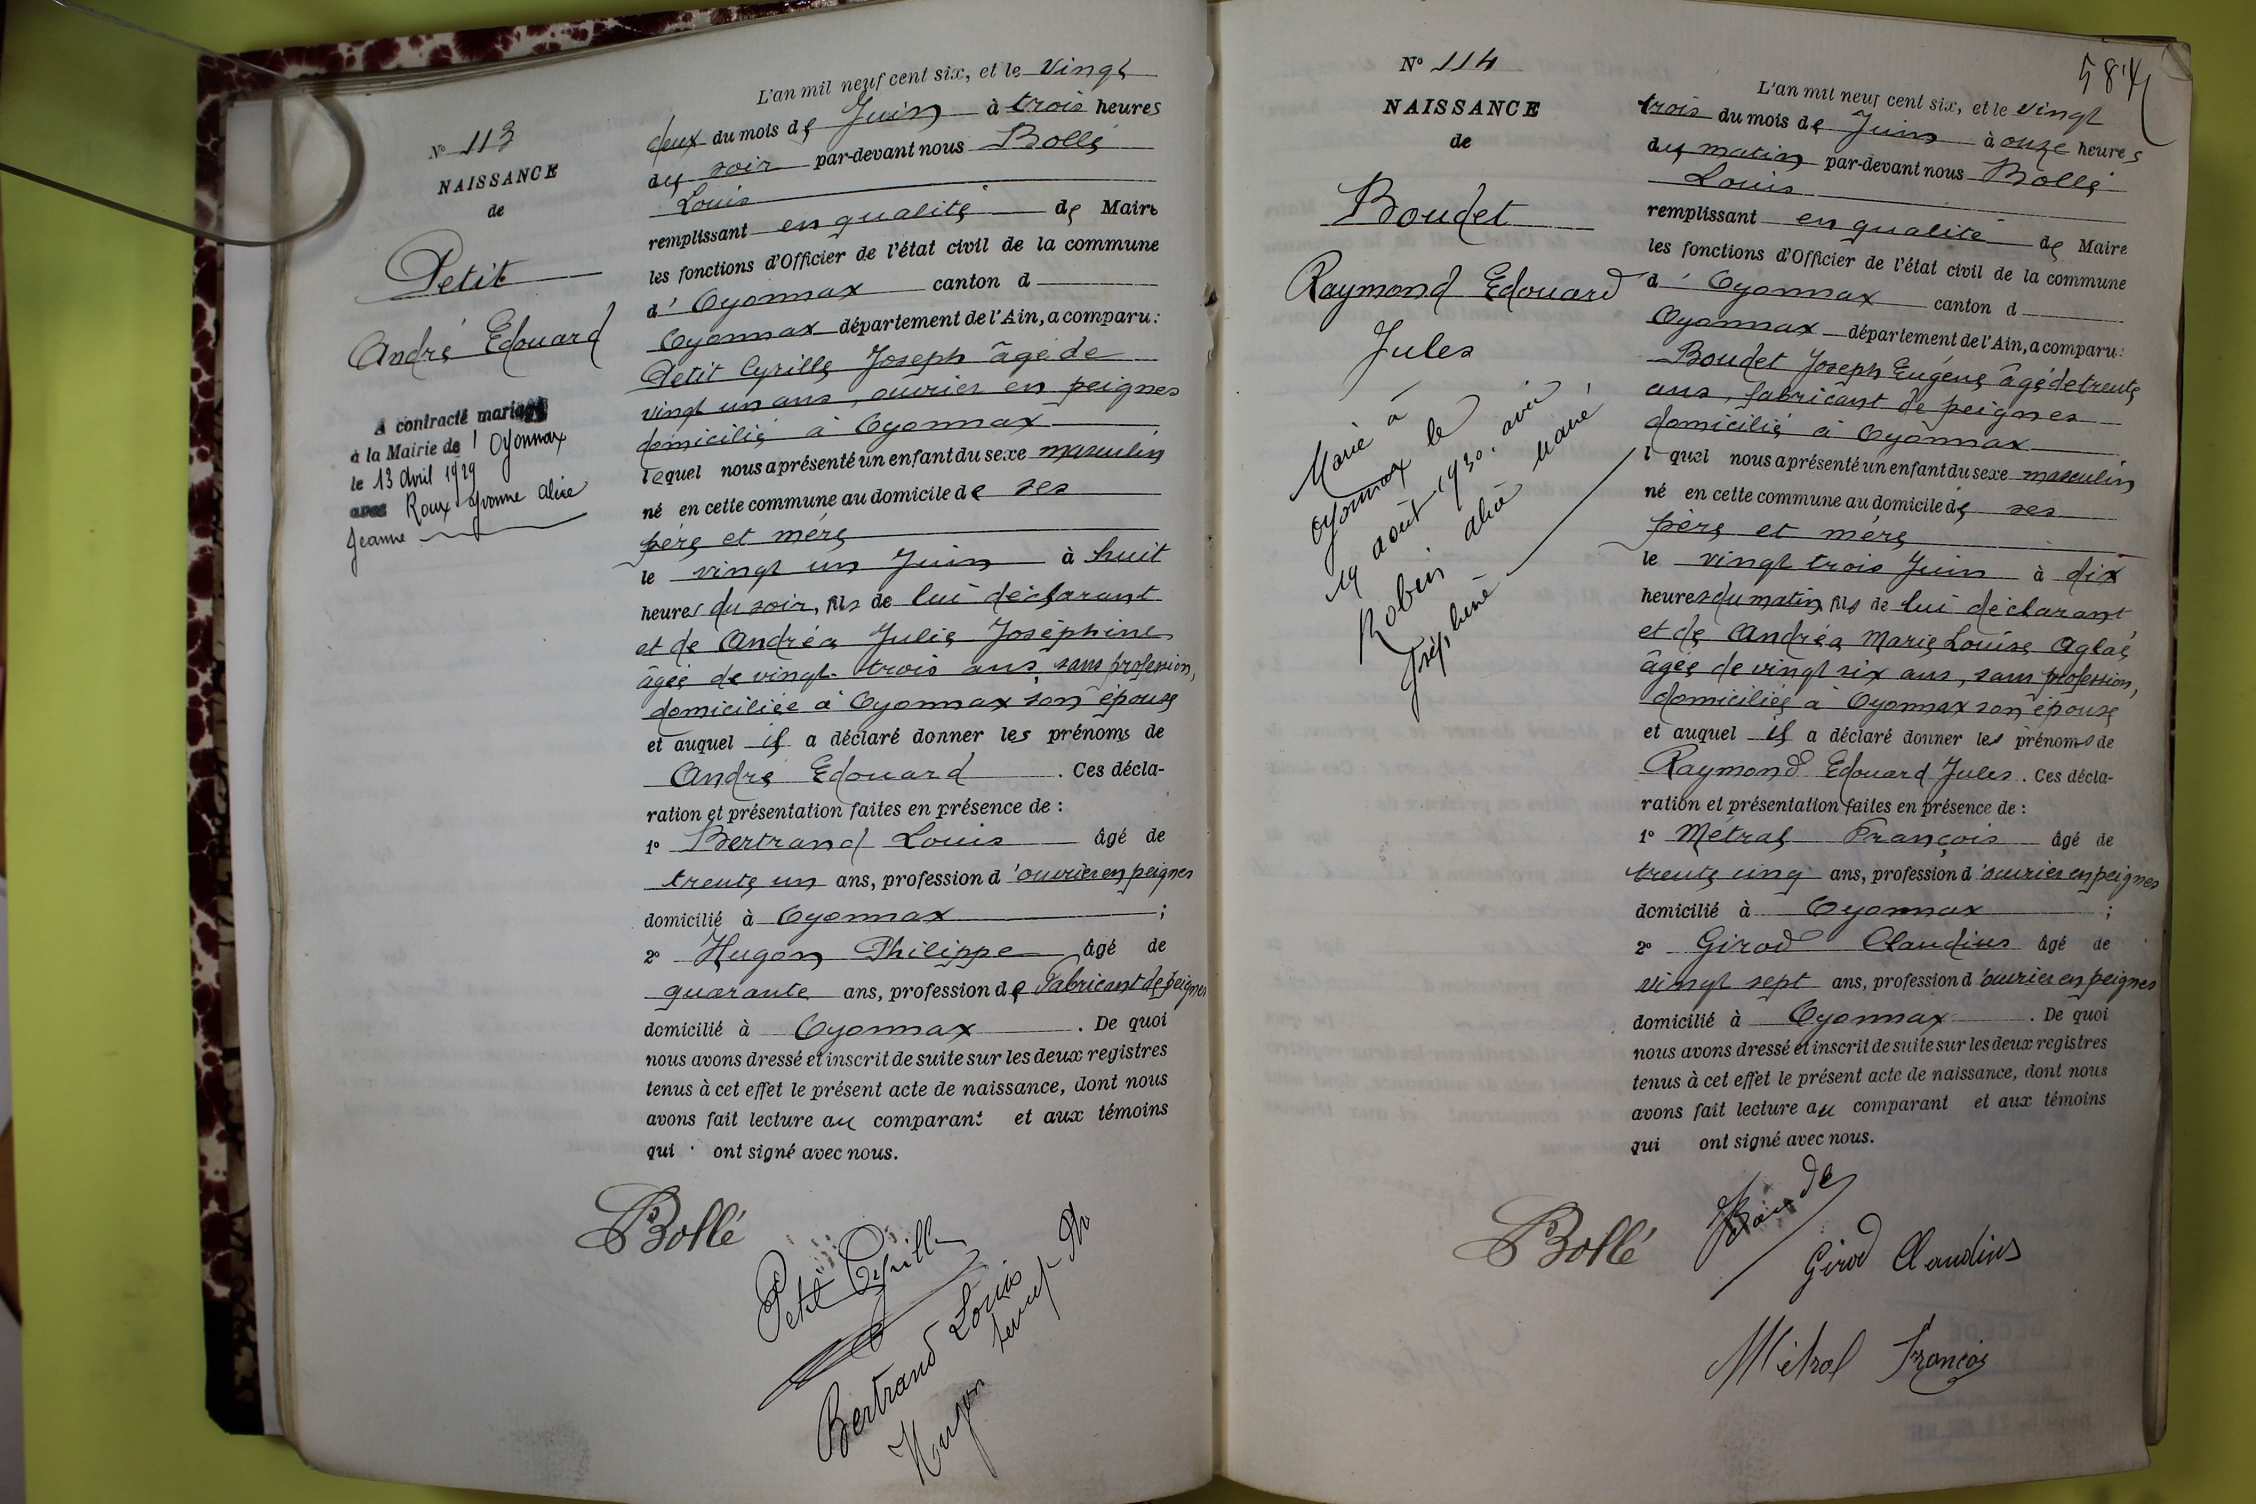 N° 113
NAISSANCE
de
Petit
André Edouard
A contracté mariage
à la Mairie de ' Oyonnax
le 13 Avril 1929
avec Roux Yvonne Alice
Jeanne
L'an mil neuf cent six, et le vingt
deux du mois de Juin à trois heures
du soir par-devant nous Bollé
Louis
remplissant en qualité de Maire
les fonctions d'Officier de l'état civil de la commune
d' Oyonnax canton d
Oyonnax département de l'Ain, a comparu:
Petit Cyrille Joseph âgé de
vingt un ans, ouvrier en peignes
domicilié à Oyonnax
lequel nous a présenté un enfant du sexe masculin
né en cette commune au domicile de ses
père et mère
le vingt un Juin à huit
heures du soir, fils de lui déclarant
et de Andréa Julie Joséphine
âgée de vingt-trois ans, sans profession,
domiciliée à Oyonnax son épouse
et auquel il a déclaré donner les prénoms de
André Edouard . Ces décla-
ration et présentation faites en présence de :
1° Bertrand Louis âgé de
trente un ans, profession d'ouvrier en peignes
domicilié à Oyonnax ;
2° Hugon Philippe âgé de
quarante ans, profession de Fabricant de peignes
domicilié à Oyonnax . De quoi
nous avons dressé et inscrit de suite sur les deux registres
tenus à cet effet le présent acte de naissance, dont nous
avons fait lecture au comparant et aux témoins
qui ont signé avec nous.
Bollé
Petit Cyrille
Bertrand Louis
Hugon
584
N° 114
NAISSANCE
de
Boudet
Raymond Edouard
Jules
Marié à
Oyonnax le
19 août 1930. avec
Robin Alice Marie
Joséphine
L'an mil neuf cent six, et le vingt
trois du mois de Juin à onze heures
du matin par-devant nous Bollé
Louis
remplissant en qualité de Maire
les fonctions d'Officier de l'état civil de la commune
d' Oyonnax canton d
Oyonnax département de l'Ain, a comparu:
Boudet Joseph Eugène âgé de trente
ans, fabricant de peignes
domicilié à Oyonnax
l quel nous a présenté un enfant du sexe masculin
né en cette commune au domicile de ses
père et mère
le vingt trois Juin à dix
heures du matin fils de lui déclarant
et de Andréa Marie Louise Aglaé
âgée de vingt six ans, sans profession,
domiciliée à Oyonnax son épouse
et auquel il a déclaré donner les prénoms de
Raymond Edouard Jules . Ces décla-
ration et présentation faites en présence de :
1° Métral François âgé de
trente cinq ans, profession d'ouvrier en peignes
domicilié à Oyonnax ;
2° Girod Claudius âgé de
vingt sept ans, profession d'ouvrier en peignes
domicilié à Oyonnax . De quoi
nous avons dressé et inscrit de suite sur les deux registres
tenus à cet effet le présent acte de naissance, dont nous
avons fait lecture au comparant et aux témoins
qui ont signé avec nous.
Bollé
Girod Claudius
Métral François